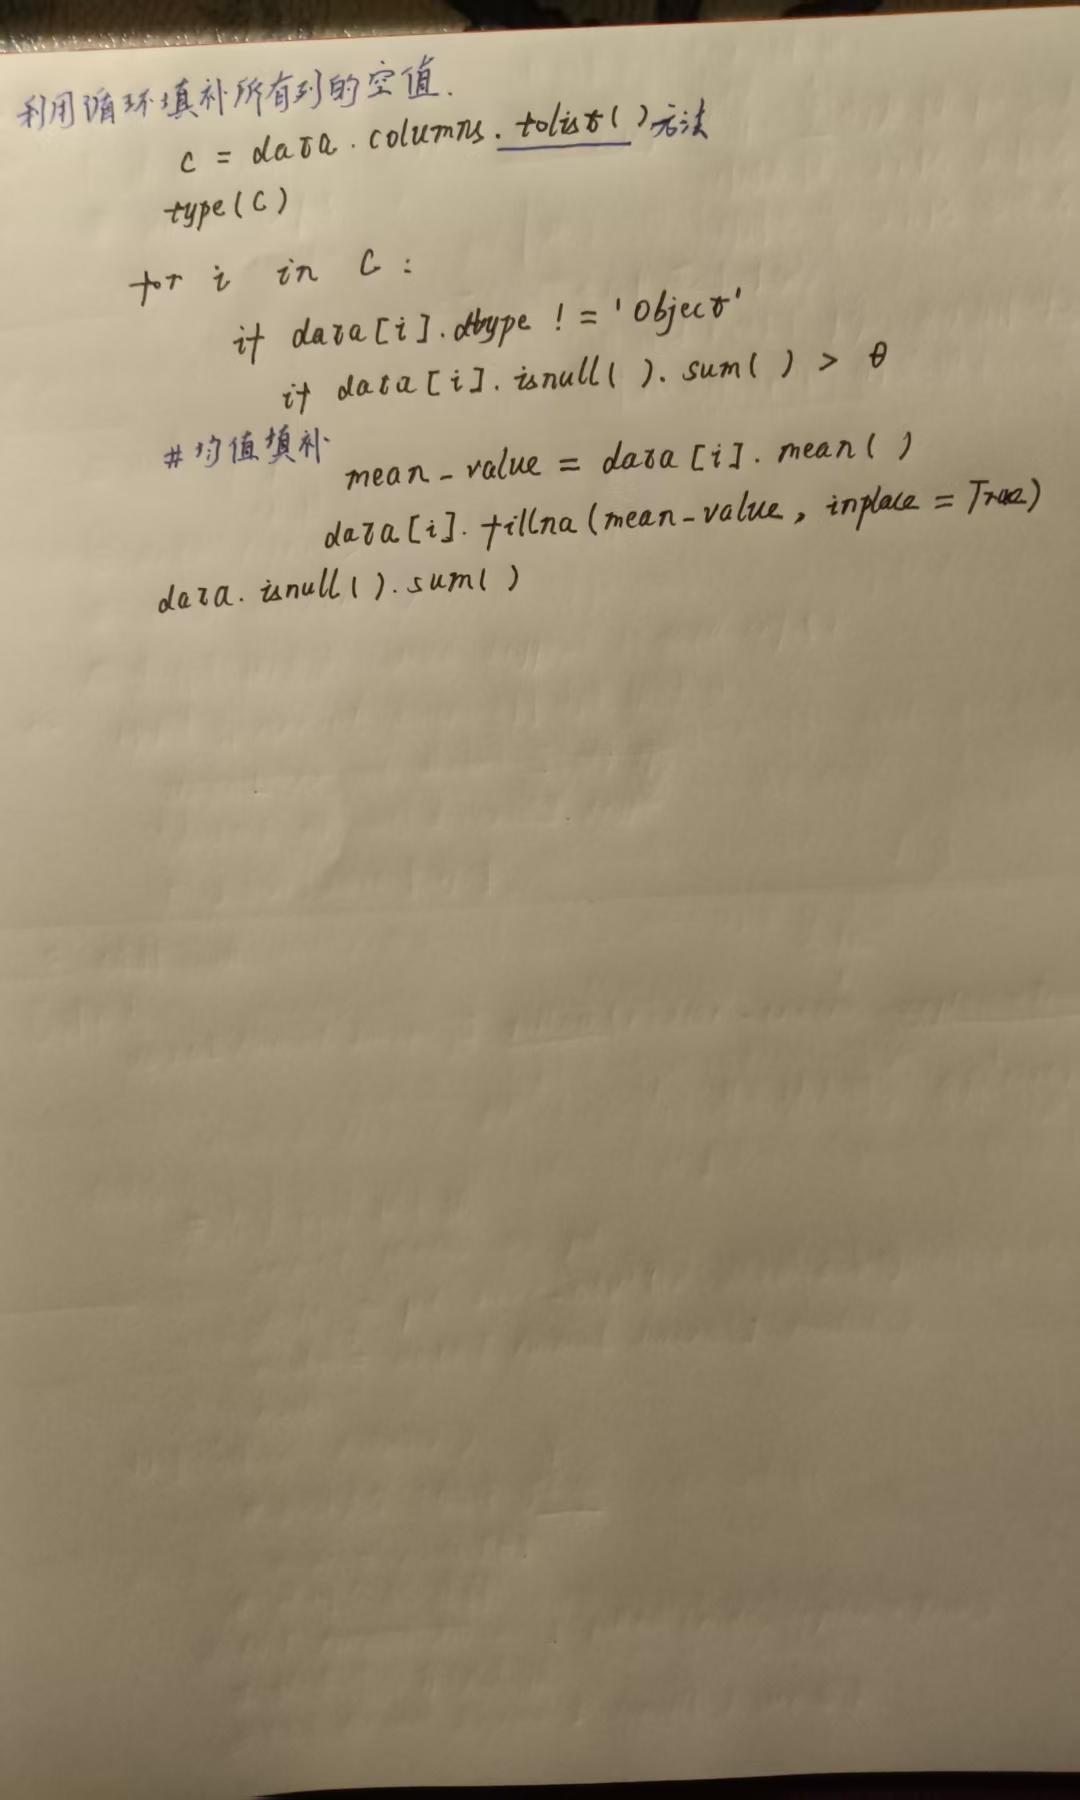 利用循环填补所有列的空值.
c = data.columns.tolist()方法
type(c)
for i in c:
if data[i].dtype != 'object'
if data[i].isnull().sum() > 0
#均值填补
mean_value = data[i].mean()
data[i].fillna(mean_value, inplace = True)
data.isnull().sum()